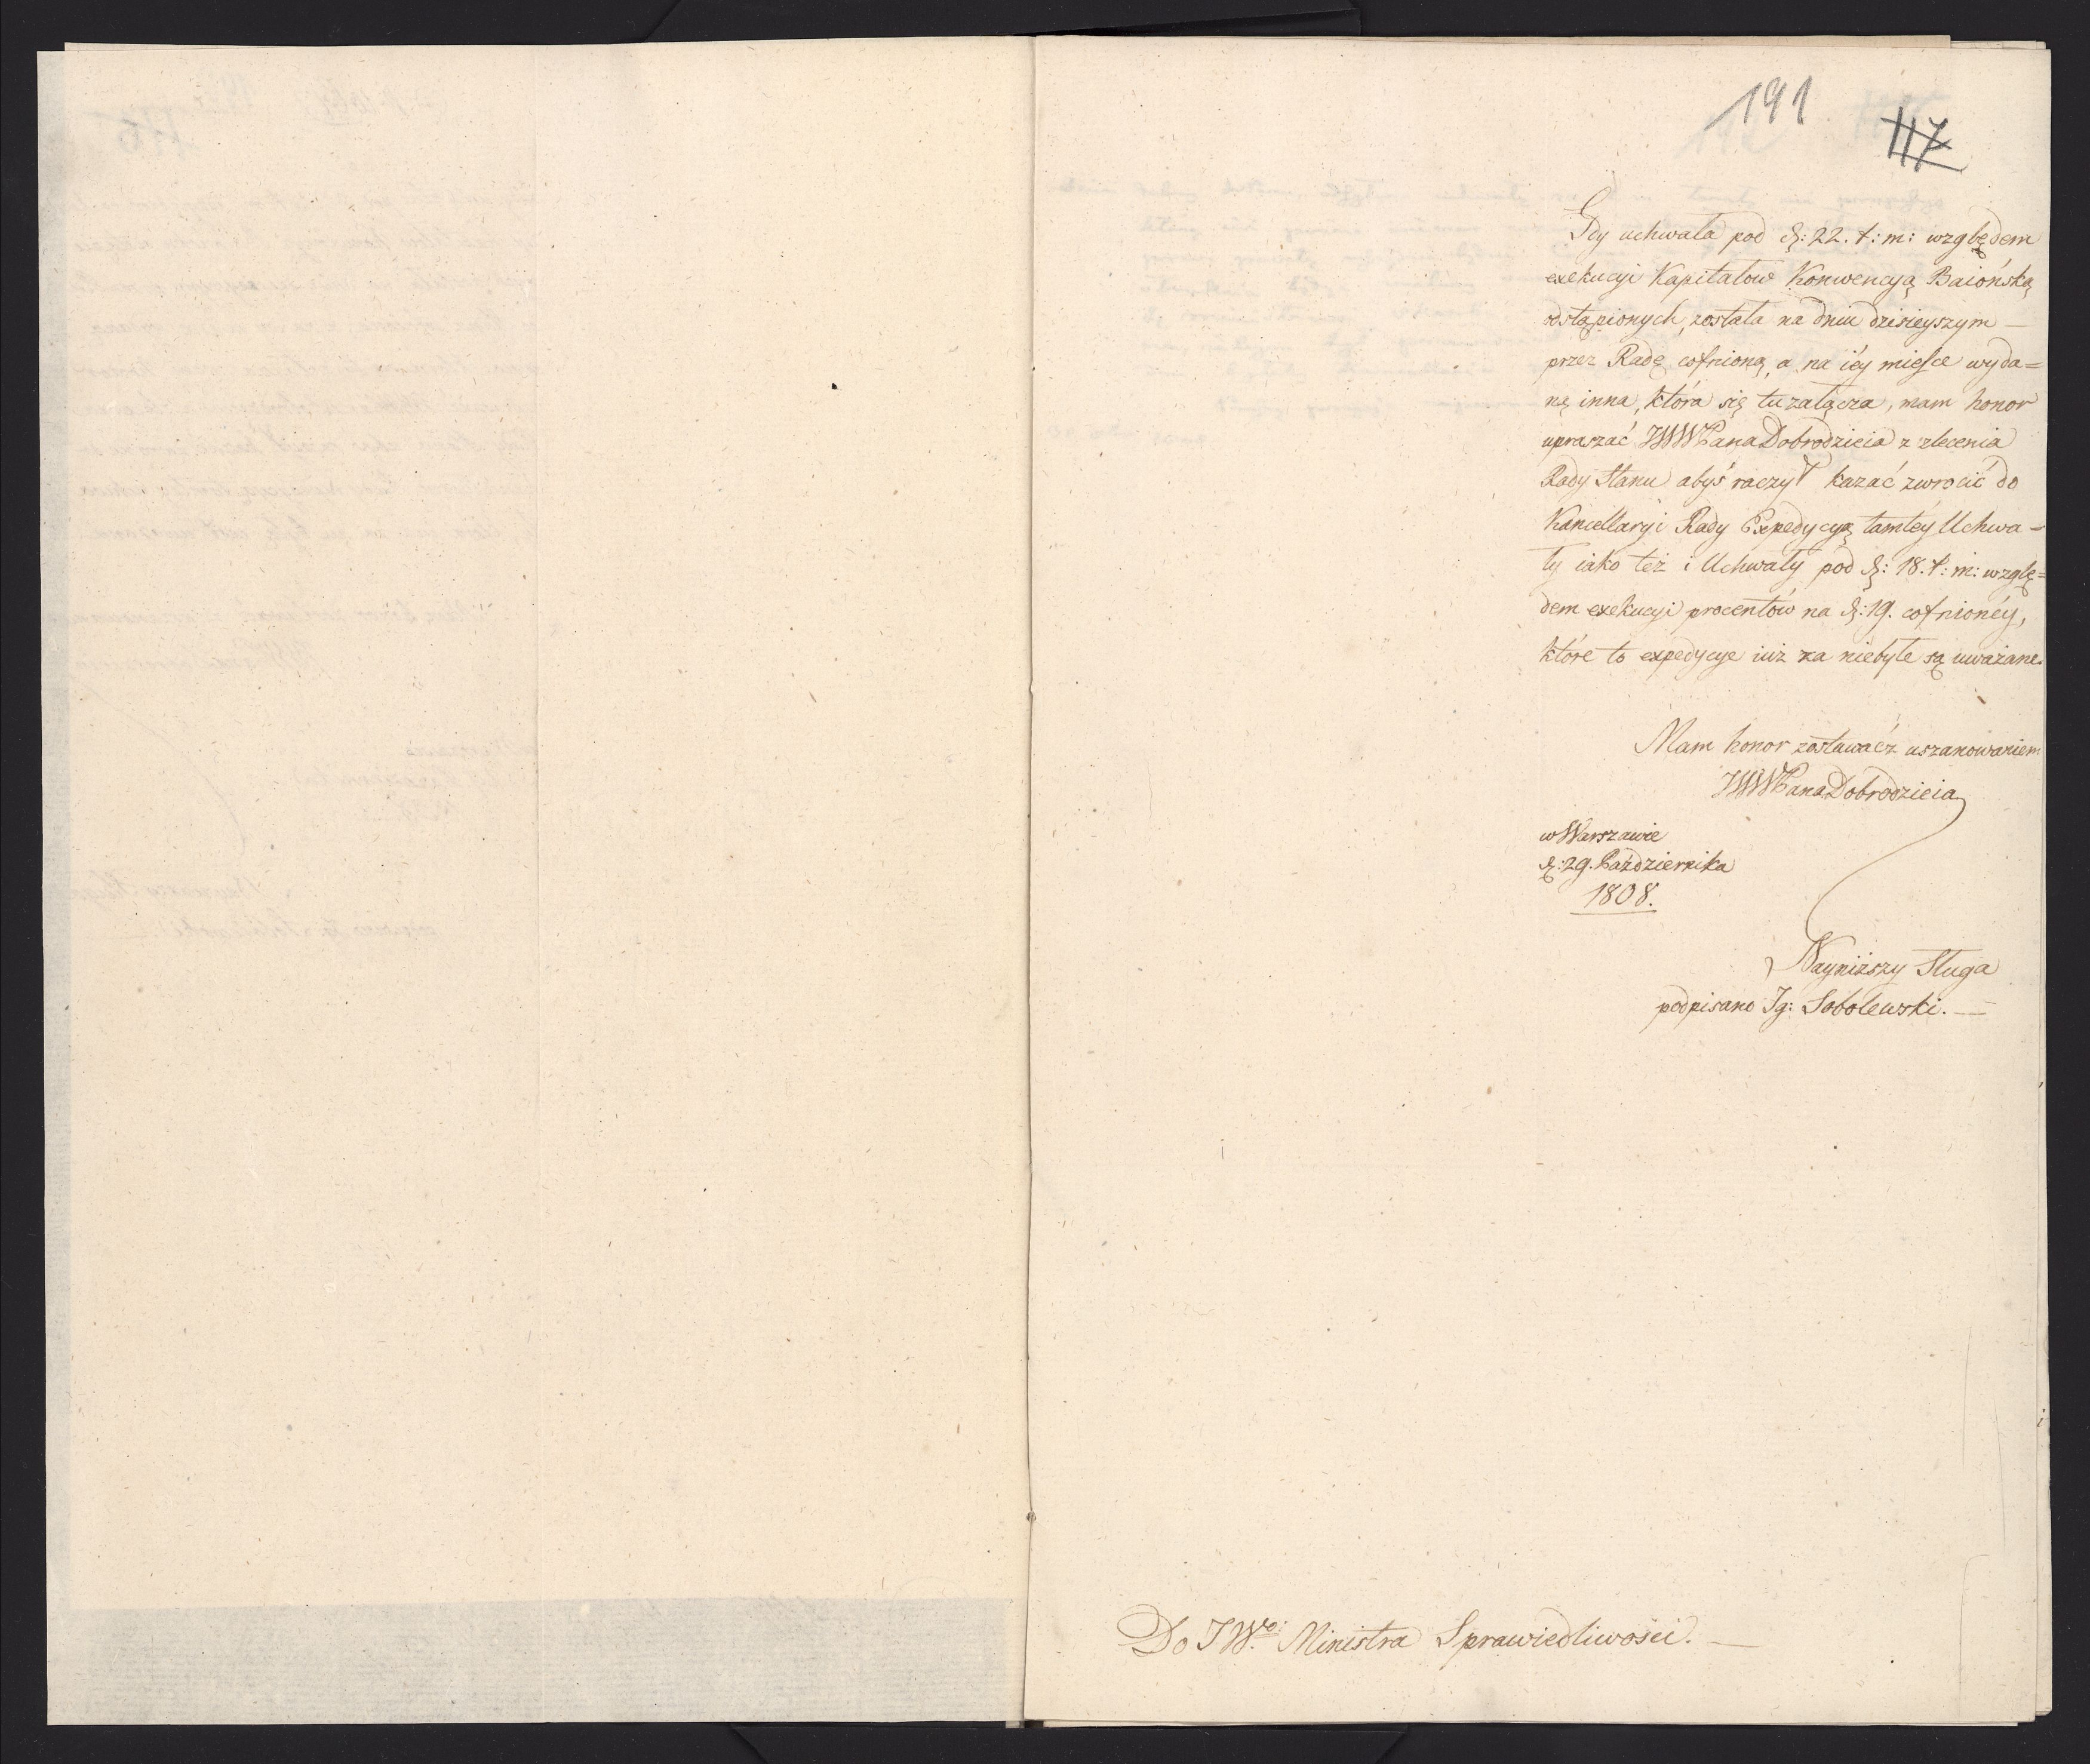 191
117
Gdy uchwała pod d: 22. t: m: względem
exekucyi Kapitałow Konwencyą Baiońską
odstąpionych, została na dniu dzisieyszym —
przez Radę cofnioną, a na iéy mieysce wyda=
ną inna, która się tu załącza, mam honor
upraszać JWWPana Dobrodzieia z zlecenia
Rady Stanu abyś raczył kazać zwrocić do
Kancellaryi Rady Expedycyą tamtéy Uchwa-
ły iako też i Uchwały pod d: 18. t: m: wzglę=
dem exekucyi procentów na d: 19. cofnionéy,
które to expedycye iuż za niebyłe są uważane.
Mam honor zostawać z uszanowaniem
JWWPana Dobrodzieia
w Warszawie
d: 29. Października
1808.
Nayniższy Sługa
podpisano Ig: Sobolewski. —
Do JWo: Ministra Sprawiedliwości. —